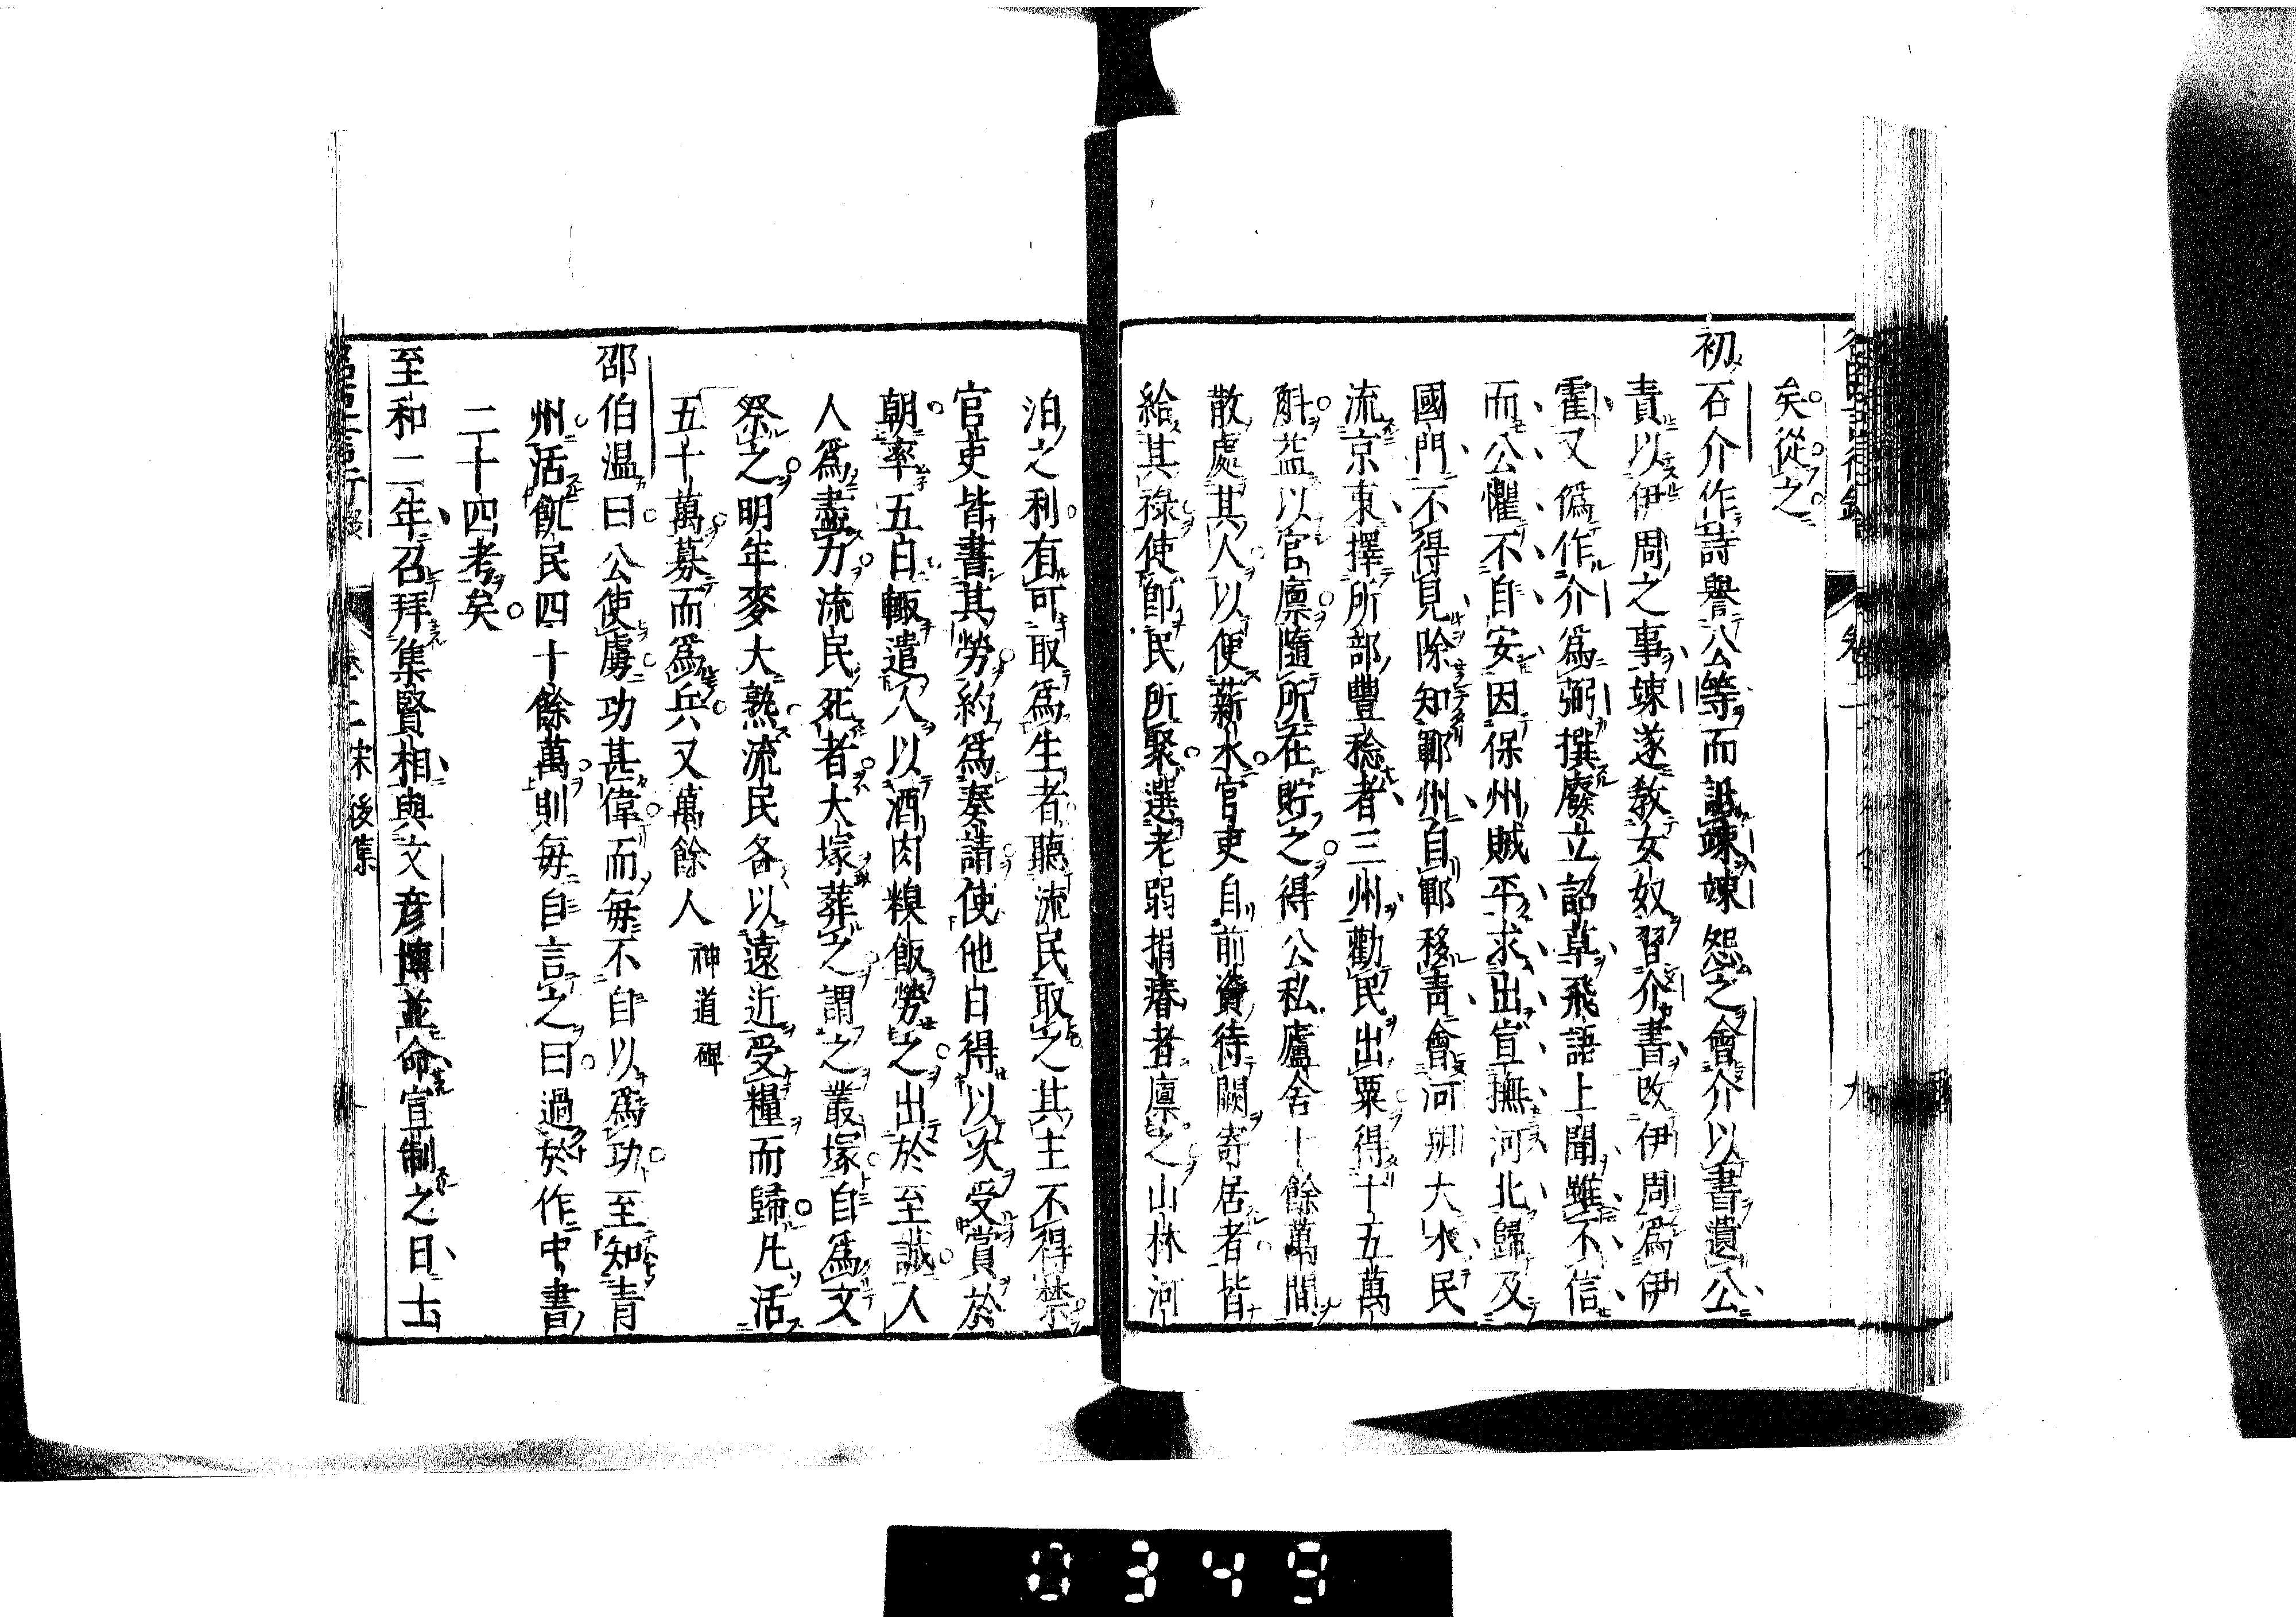 矣從之
初石介作詩譽公等而詆竦竦怨之會介以書遺公
責以伊周之事竦遂教女奴習介書改伊周爲伊
霍又僞作介爲弼撰廢立詔草飛語上聞雖不信
而公懼不自安因保州賊平求出宣撫河北歸及
國門不得見除知鄆州自鄆移青會河朔大水民
流京東擇所部豐稔者三州勸民出粟得十五萬
斛益以官廩隨所在貯之得公私廬舍十餘萬間
散處其人以便薪水官吏自前資待闕寄居者皆
給其祿使卽民所聚選老弱捐瘠者廩之山林河
泊之利有可取爲生者聽流民取之其主不得禁
官吏皆書其勞約爲奏請使他日得以次受賞於
朝率五日輙遣人以酒肉糗飯勞之出於至誠人
人爲盡力流民死者大塚葬之謂之叢塚自爲文
祭之明年麥大熟流民各以遠近受糧而歸凡活
五十萬募而爲兵又萬餘人 神道碑
邵伯温曰公使虜功甚偉而每不自以爲功至知青
州活飢民四十餘萬則每自言之曰過於作中書
二十四考矣
至和二年召拜集賢相與文彦博並命宣制之日士
宋後集
0349